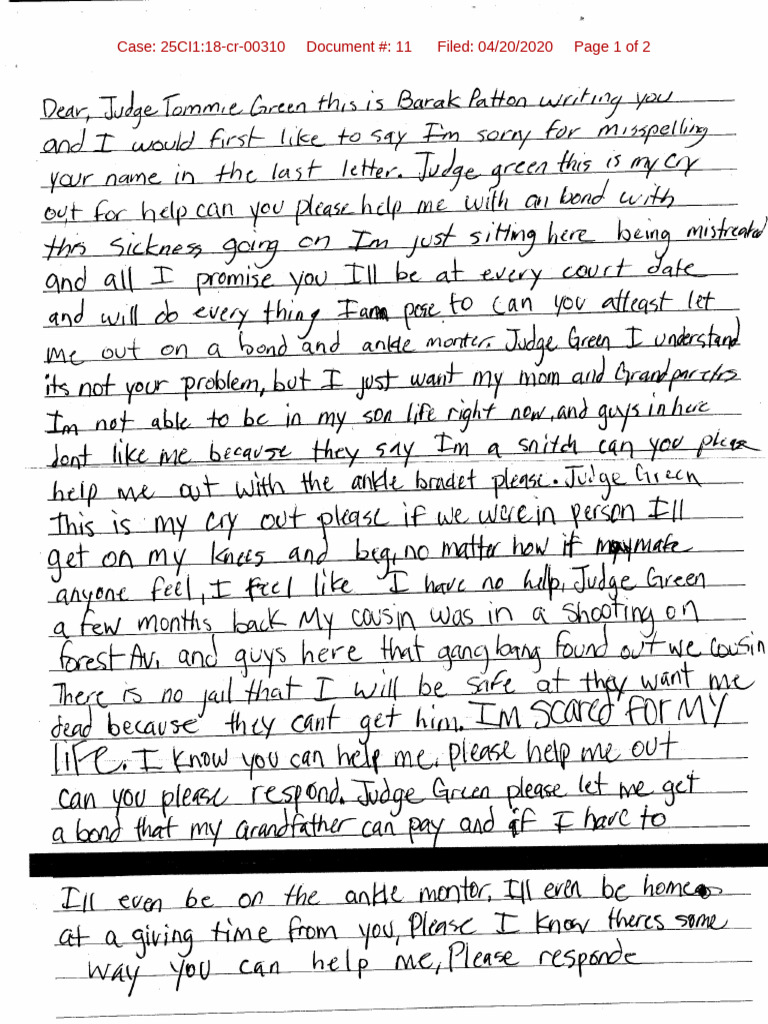 Case: 25CI1:18-cr-00310 Document #: 11 Filed: 04/20/2020 Page 1 of 2
Dear, Judge Tommie Green this is Barak Patton writing you
and I would first like to say I'm sorry for misspelling
your name in the last letter. Judge green this is my cry
out for help can you please help me with an bond with
this sickness going on Im just sitting here being mistreated
and all I promise you I'll be at every court date
and will do every thing I am pose to can you atleast let
me out on a bond and ankle monter. Judge Green I understand
its not your problem, but I just want my mom and
Im not able to be in my son life right now, and guys in here
dont like me because they say I'm a snitch can you please
help me out with the ankle please. Judge Green
This is my cry out please if we were in person I'll
get on my knees and beg, no matter how it mate
anyone feel, I feel like I have no help, Judge Green
a few months back My cousin was in a shooting on
forest Av. and guys here that gang bang found out we cousin
There is no jail that I will be safe at they want me
dead because they cant get him. IM SCARED FOR MY
LIFE. I know you can help me. please help me out
can you please respond. Judge Green please let me get
a bond that my Grandfather can pay and if I have to
I'll even be on the ankle montor. I'll even be home
at a giving time from you, Please I know theres some
way you can help me, Please responde